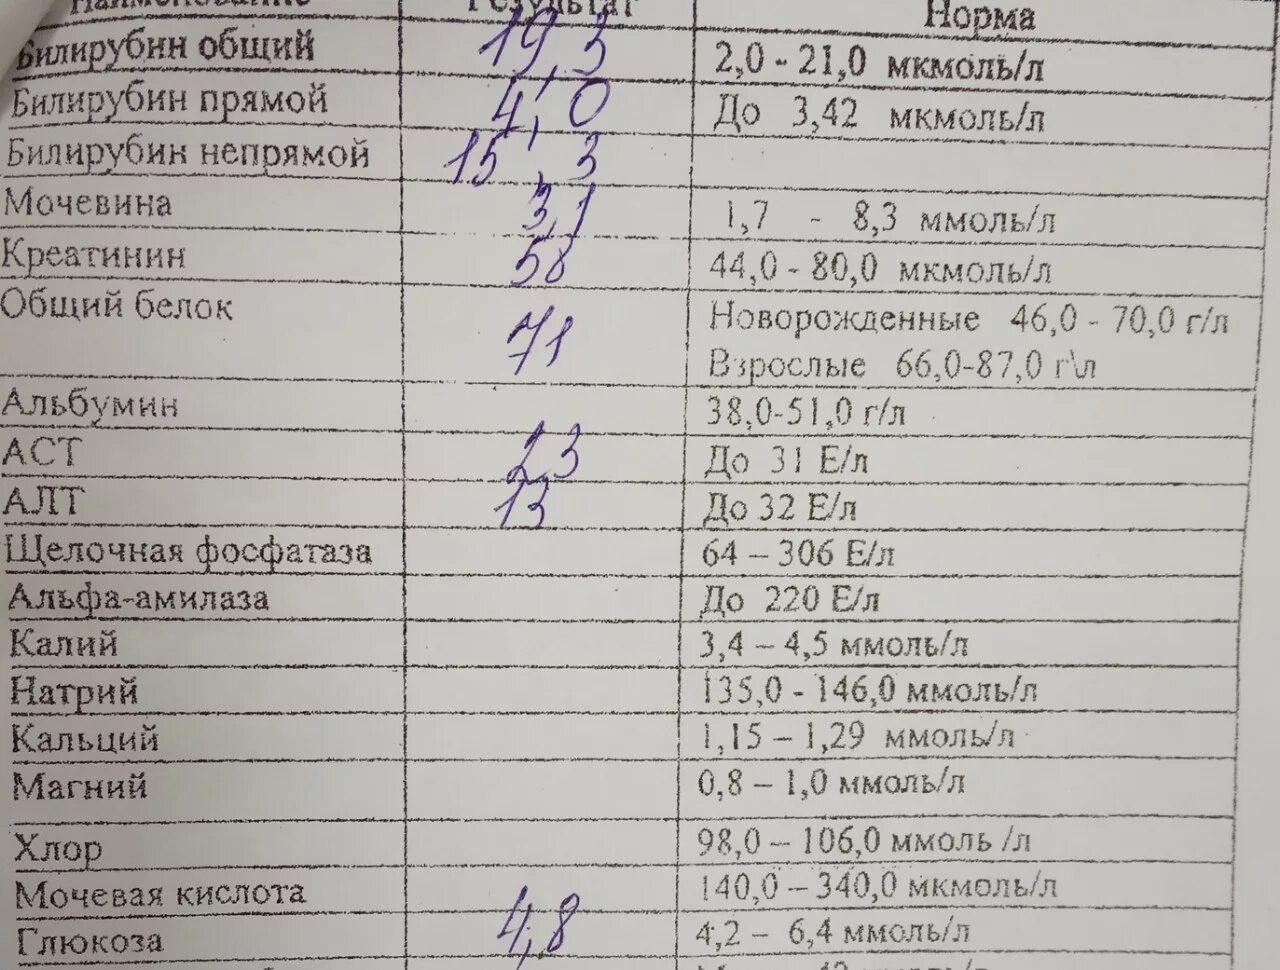 Наименование Результат Норма
Билирубин общий 19,3 2,0 - 21,0 мкмоль/л
Билирубин прямой 4,0 До 3,42 мкмоль/л
Билирубин непрямой 15,3
Мочевина 3,1 1,7 - 8,3 ммоль/л
Креатинин 58 44,0 - 80,0 мкмоль/л
Общий белок 71 Новорожденные 46,0 - 70,0 г/л
Взрослые 66,0-87,0 г\л
Альбумин 38,0-51,0 г/л
АСТ 23 До 31 Е/л
АЛТ 13 До 32 Е/л
Щелочная фосфатаза 64 – 306 Е/л
Альфа-амилаза До 220 Е/л
Калий 3,4 – 4,5 ммоль/л
Натрий 135,0 - 146,0 ммоль/л
Кальций 1,15 – 1,29 ммоль/л
Магний 0,8 – 1,0 ммоль/л
Хлор 98,0 – 106,0 ммоль /л
Мочевая кислота 140,0 – 340,0 мкмоль/л
Глюкоза 4,8 4,2 – 6,4 ммоль/л